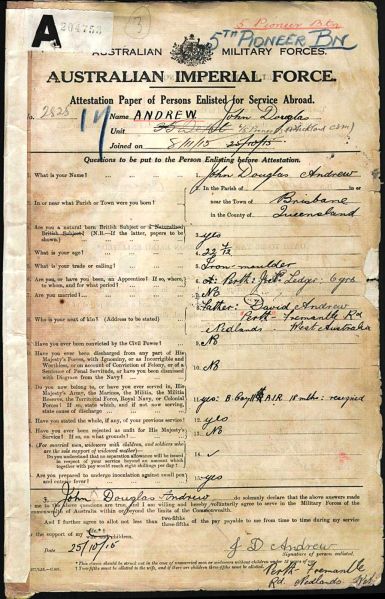 5 Pioneer Btn
A 304758 3
5TH PIONEER BN
AUSTRALIAN MILITARY FORCES.
AUSTRALIAN IMPERIAL FORCE.
Attestation Paper of Persons Enlisted for Service Abroad.
No. 2825 17 Name ANDREW John Douglas
Unit
Joined on 8/11/15 25/10/15
Questions to be put to the Person Enlisting before Attestation.
What is your Name? John Douglas Andrew
In the Parish of
In or near what Parish or Town were you born? in or near the Town of Brisbane
in the County of Queensland
Are you a natural born British Subject or a Naturalised
British Subject? (N.B.—If the latter, papers to be
shown.) yes
What is your age? 22
What is your trade or calling? Iron moulder
Are you, or have you been, an Apprentice? If so, where,
to whom, and for what period? Perth Ledger 6 yrs
Are you married? No
Who is your next of kin? (Address to be stated) Father: David Andrew
Perth-Fremantle Rd
Nedlands West Australia
Have you ever been convicted by the Civil Power? No
Have you ever been discharged from any part of His
Majesty's Forces, with Ignominy, or as Incorrigible and
Worthless, or on account of Conviction of Felony, or of a
Sentence of Penal Servitude, or have you been dismissed
with Disgrace from the Navy? No
Do you now belong to, or have you ever served in, His
Majesty's Army, the Marines, the Militia, the Militia
Reserve, the Territorial Force, Royal Navy, or Colonial
Forces? If so, state which, and if not now serving,
state cause of discharge yes: B Coy A.I.R. 18 mths: resigned
Have you stated the whole, if any, of your previous service? yes
Have you ever been rejected as unfit for His Majesty's
Service? If so, on what grounds? No
(For married men, widowers with children, and soldiers who are
the sole support of widowed mother)—
Do you understand that no separation allowance will be issued
in respect of your service beyond an amount which
together with pay would reach eight shillings per day?
Are you prepared to undergo inoculation against small pox
and enteric fever? yes
I, John Douglas Andrew do solemnly declare that the above answers made
by me to the above questions are true, and I am willing and hereby voluntarily agree to serve in the Military Forces of the
Commonwealth of Australia within or beyond the limits of the Commonwealth.
And I further agree to allot not less than two-fifths
three-fifths of the pay payable to me from time to time during my service
for the support of my wife
wife and children.
Date 25/10/15 J D Andrew
Signature of person enlisted.
Perth-Fremantle
Rd. Nedlands